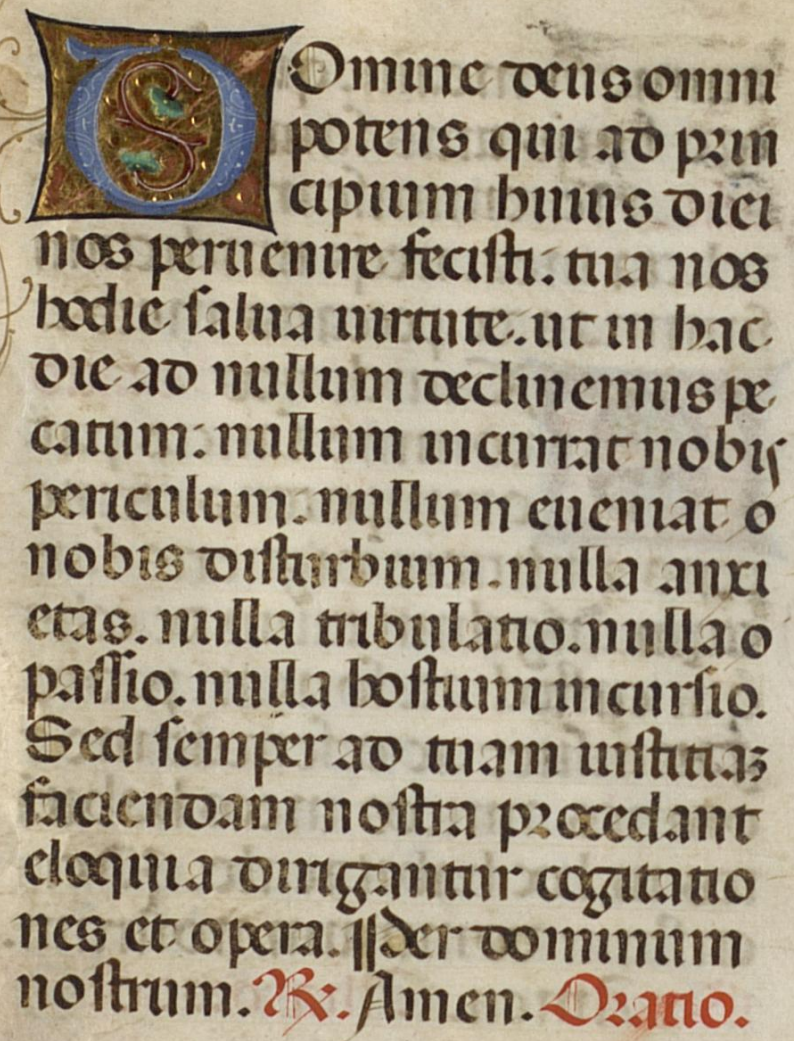 DOmine deus omni
potens qui ad prin
cipium huius diei
nos peruenire fecisti. tua nos
hodie salua uirtute. ut in hac
die ad nullum declinemus pe
catum: nullum incurrat nobis
periculum. nullum eueniat o
nobis disturbium. nulla anxi
etas. nulla tribulatio. nulla o
passio. nulla hostium incursio.
Sed semper ad tuam iustitiaꝫ
faciendam nostra procedant
eloquia dirigantur cogitatio
nes et opera. Per dominum
nostrum. ℟. Amen. Oratio.